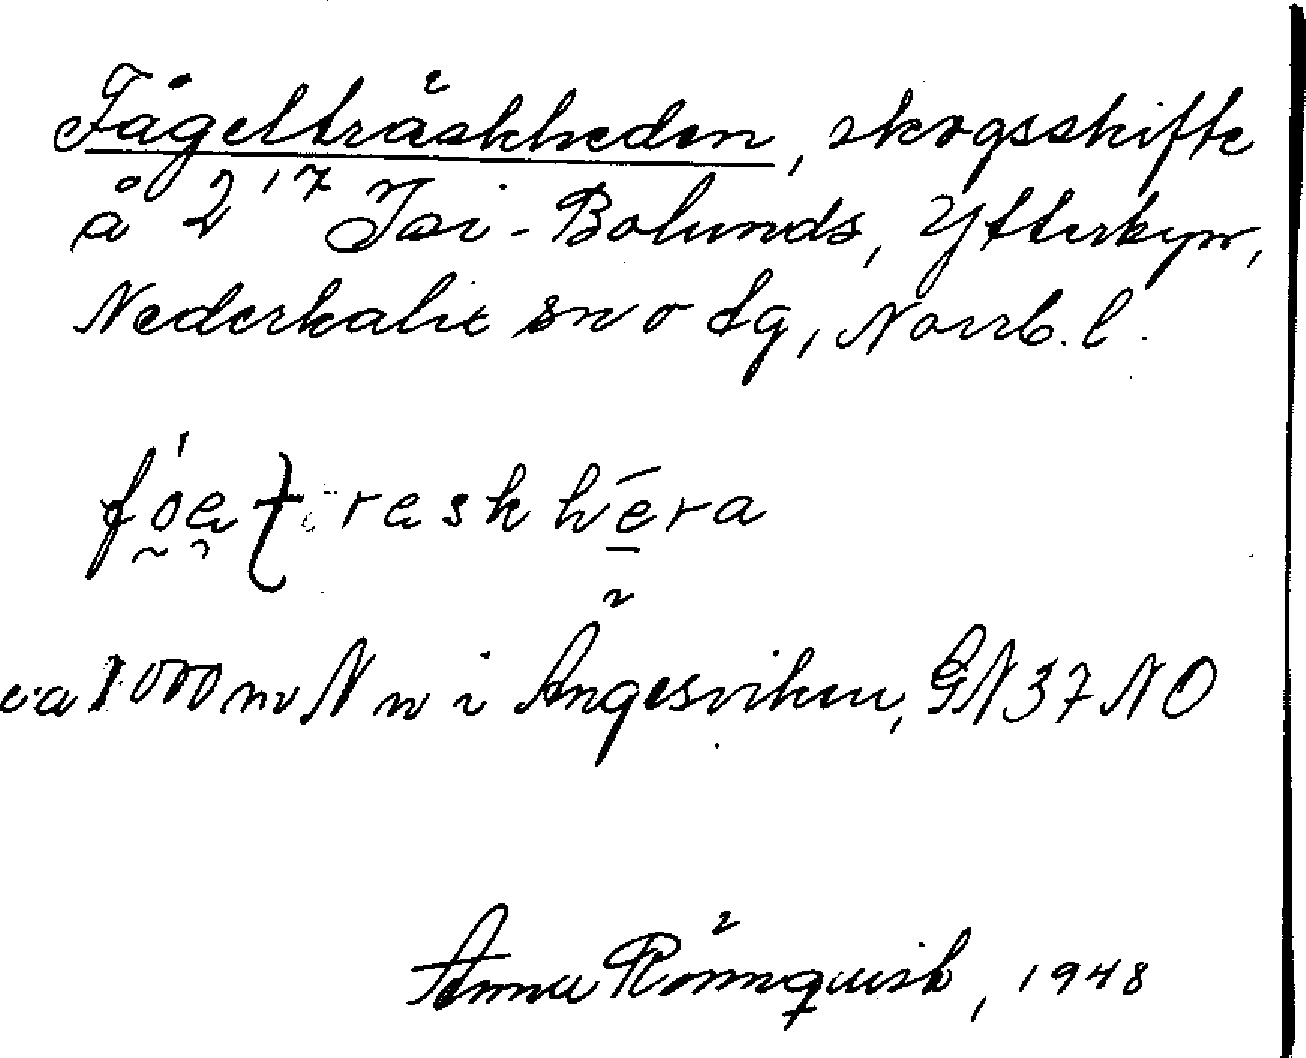 Fågelträskheden, skogsskifte
å 2¹⁷ Isi-Bolunds, Ytterbyn,
Nederkalix sn o tg, Norrb. l.
ca 1000 m N n i Ängesviken, GN 37 NO
Anna Rönnquist, 1948